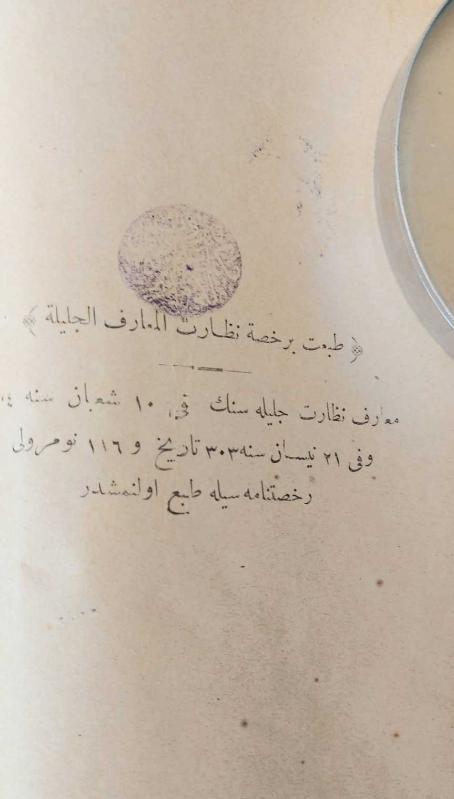 ﴿ طبعت برخصة نظارت المعارف الجليلة ﴾
معارف نظارت جليله سنك فى ١٠ شعبان سنه
وفى ٢١ نيسان سنه ٣٠٣ تاريخ و ١١٦ نومرولى
رخصتنامه سيله طبع اولنمشدر